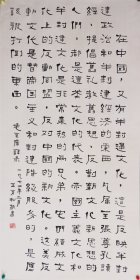 在中国又有半封建文化这是反映半封
建政治和半封建经济的东西凡属主张尊孔读
经提倡旧礼教旧思想反对新文化新思想的人
们都是这类文化的代表帝国主义文化和
半封建文化是非常亲热的两兄弟它们结成文
化上的反动同盟反对中国的新文化这类反
动文化是替帝国主义和封建阶级服务的是应
该被打倒的东西